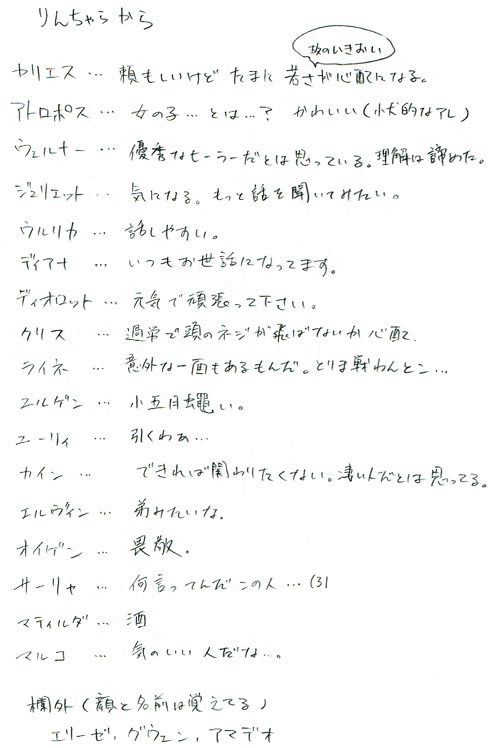 りんちゃらから
故のいきおい
カリエス … 頼もしいけど たまに 若さが心配になる。
アトロポス … 女の子…とは…? かわいい(小犬的なアレ)
ウェルナー … 優秀なヒーラーだとは思っている。理解は諦めた。
ジュリエット … 気になる。もっと話を聞いてみたい。
ウルリカ … 話しやすい。
ディアナ … いつもお世話になってます。
ディオロット … 元気で頑張って下さい。
クリス … 過労で頭のネジが飛ばないか心配。
ライネ … 意外な一面もあるもんだ。とりま戦わんとこ…
ユルゲン … 小五月蠅い。
ユーリィ … 引くわぁ…
カイン … できれば関わりたくない。凄い人だとは思ってる。
エルヴィン … 弟みたいな。
オイゲン … 畏敬。
サーリャ … 何言ってんだこの人…(3)
マティルダ … 酒
マルコ … 気のいい人だな…。
欄外(顔と名前は覚えてる)
エリーゼ、グウェン、アマデオ